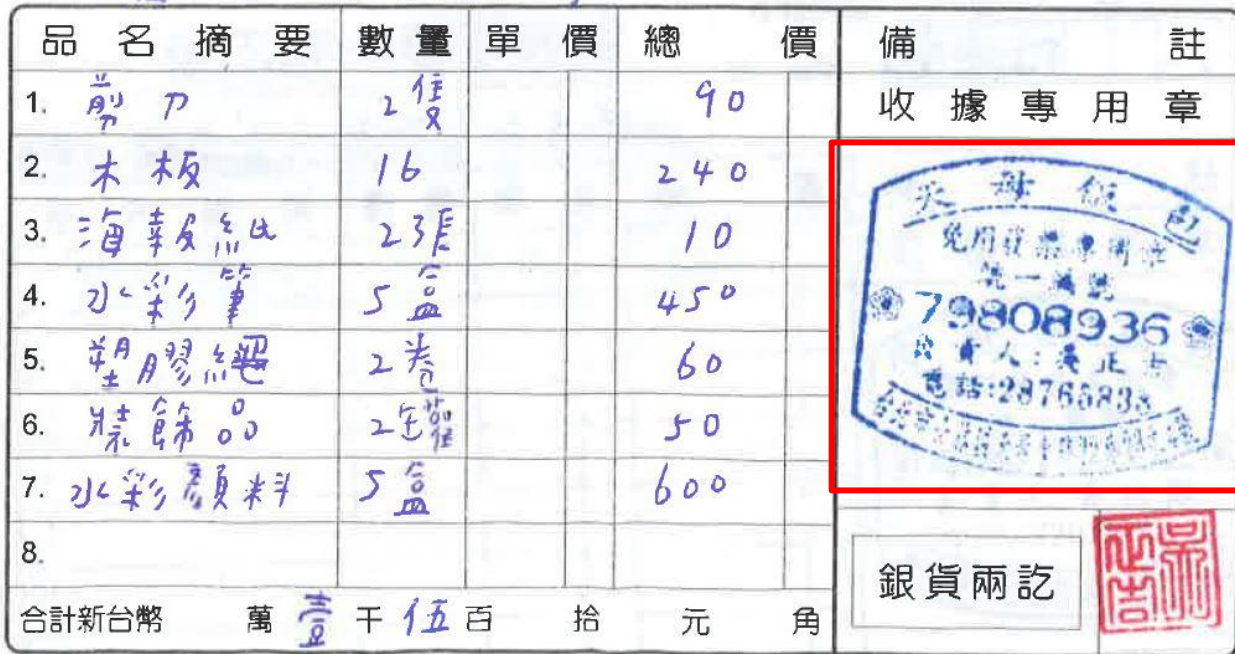 品名摘要 數量 單價 總價 備註
1. 剪刀 2隻 90 收據專用章
2. 木板 16 240
3. 海報紙 2張 10
4. 水彩筆 5盒 450
5. 塑膠繩 2卷 60
6. 裝飾品 2 50
7. 水彩顏料 5盒 600
8.
合計新台幣 萬 壹 千 伍 百 拾 元 角
免用發票專用章
統一編號
79808936
負責人:吳正吉
電話:2876583
銀貨兩訖
吳正吉